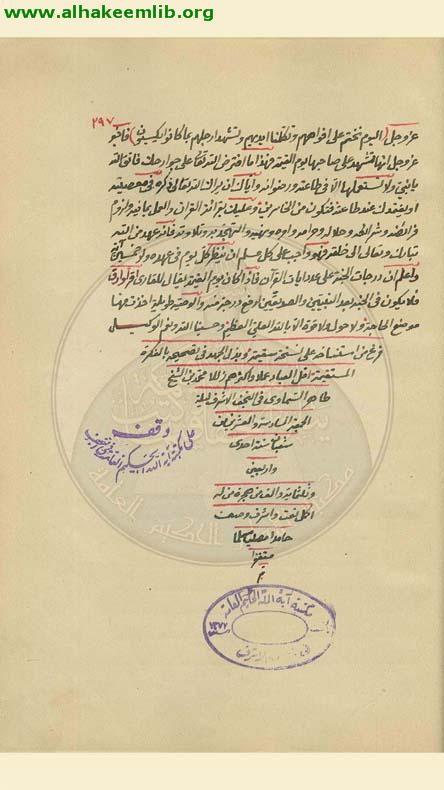 www.alhakeemlib.org
٢٩٧
عز وجل (اليوم نختم على افواههم وتكلمنا ايديهم وتشهد ارجلهم بما كانوا يكسبون) فاخبر
عز وجل انها تشهد على صاحبها يوم القيمة فهذا ما افترض الله تعالى على جوارحك فاتق الله
يا بني ولا تستعملها الا في طاعته ورضوانه واياك ان يراك الله تعالى ذكره في معصيته
او يفقدك عند طاعته فتكون من الخاسرين وعليك بقرائة القرآن والعمل بما فيه ولزوم
فرائضه وشرايعه وحلاله وحرامه وامره ونهيه والتهجد به وتلاوته فانه عهد من الله
تبارك وتعالى الى خلقه فهو واجب على كل مسلم ان ينظر كل يوم في عهده ولو خمسين آية
واعلم ان درجات الجنة على عدد ايات القرآن فاذا كان يوم القيمة يقال للقارئ اقرأ وارق
فلا يكون في الجنة بعد النبيين والصديقين ارفع درجة منه والوصية طويلة اخذنا منها
موضع الحاجة ولا حول ولا قوة الا بالله العلي العظيم وحسبنا الله ونعم الوكيل
فرغ من استنساخه على نسخة سقيمة وبذل الجهد في تصحيحه بالفكرة
المستقيمة اقل العباد عملا واكثرهم زللا محمد بن الشيخ
طاهر السماوي في النجف الاشرف ليلة
الجمعة السادسة والعشرين من
شعبان سنة احدى
واربعين
وثلثمائة والف من هجرة من له
اكمل نعت واشرف وصف
حامدا مصليا مسلما
مستغفرا
م
وقف
على مكتبة اية الله الحكيم العامة في النجف
مكتبة آية الله الحكيم العامة